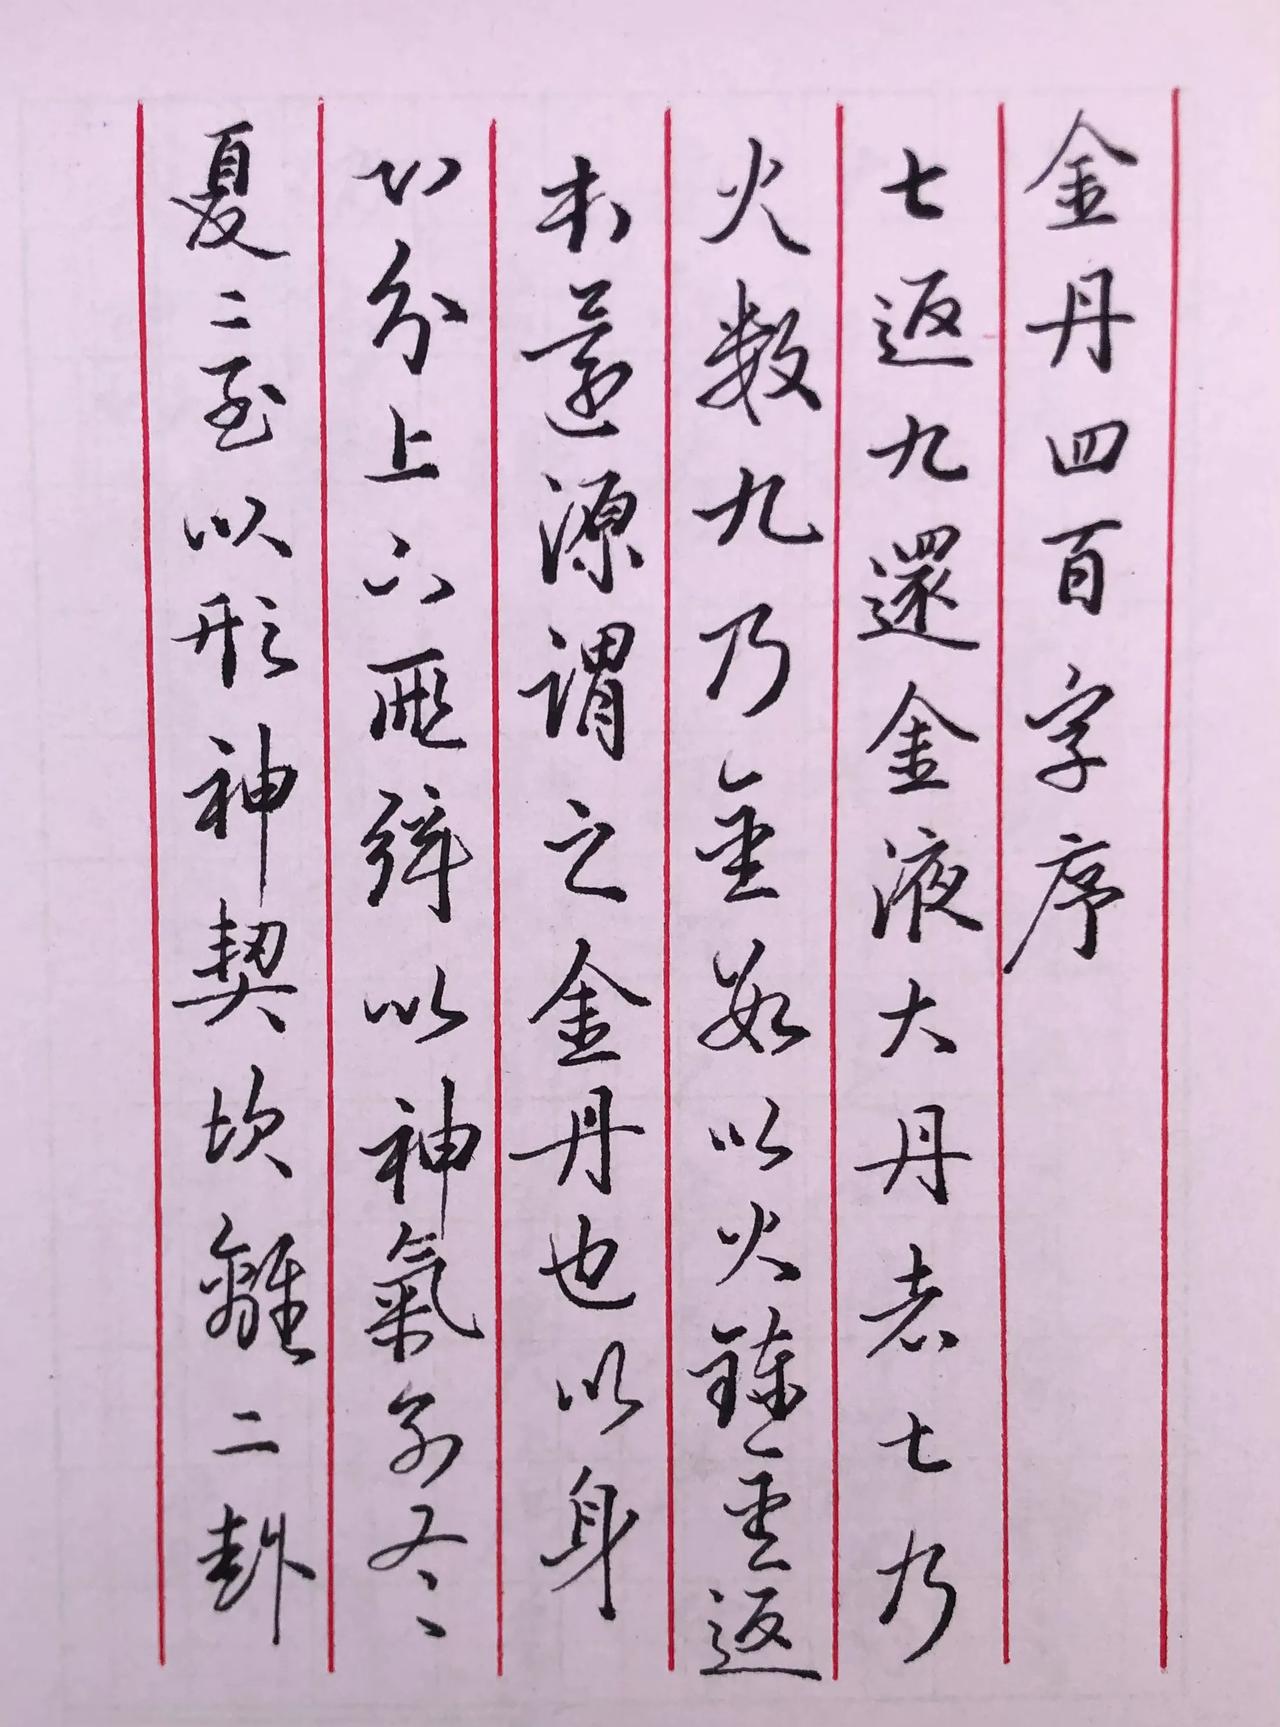 金丹四百字序
七返九還金液大丹者七乃
火數九乃金數以火鍊金返
本還源謂之金丹也以身
心分上下兩弦以神氣分冬
夏二至以形神契坎離二卦